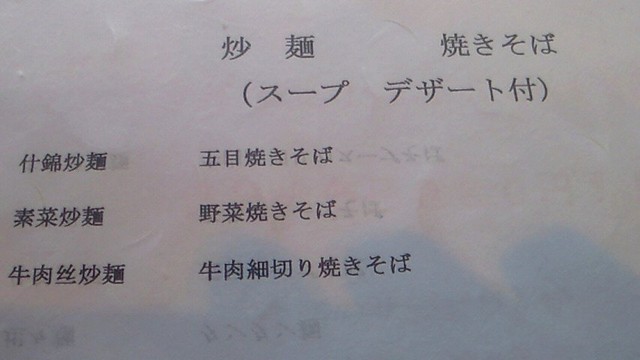 炒 麺 焼きそば
(スープ デザート付)
什錦炒麺 五目焼きそば
素菜炒麺 野菜焼きそば
牛肉丝炒麺 牛肉細切り焼きそば